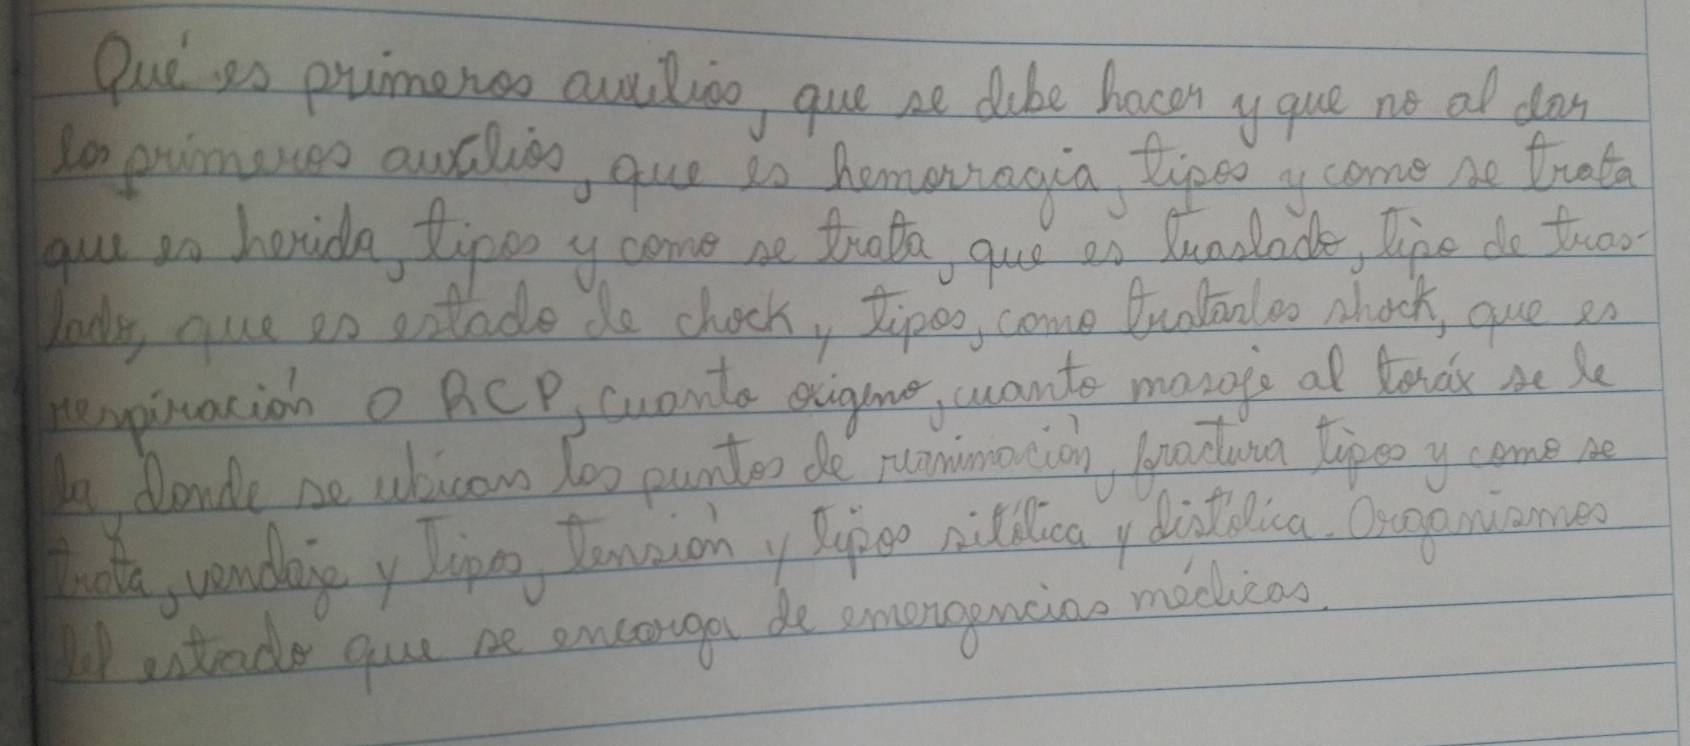 Qué es primeros auxilios, que se debe hacer y que no al dar
los primeros auxilios, que es hemorragia, tipos y como se trata
que es herida, tipos y como se trata, que es traslado, tipo de tras-
lado, que es estado de chock, tipos, como tratarlos shock, que es
respiración o RCP, cuanto oxigeno, cuanto masaje al toráx se le
da, donde se ubican los puntos de reanimación, fractura tipos y como se
trata, vendaje y tipos, tensión y tipos sitólica y distólica. Organismos
del estado que se encarga de emergencias médicas.